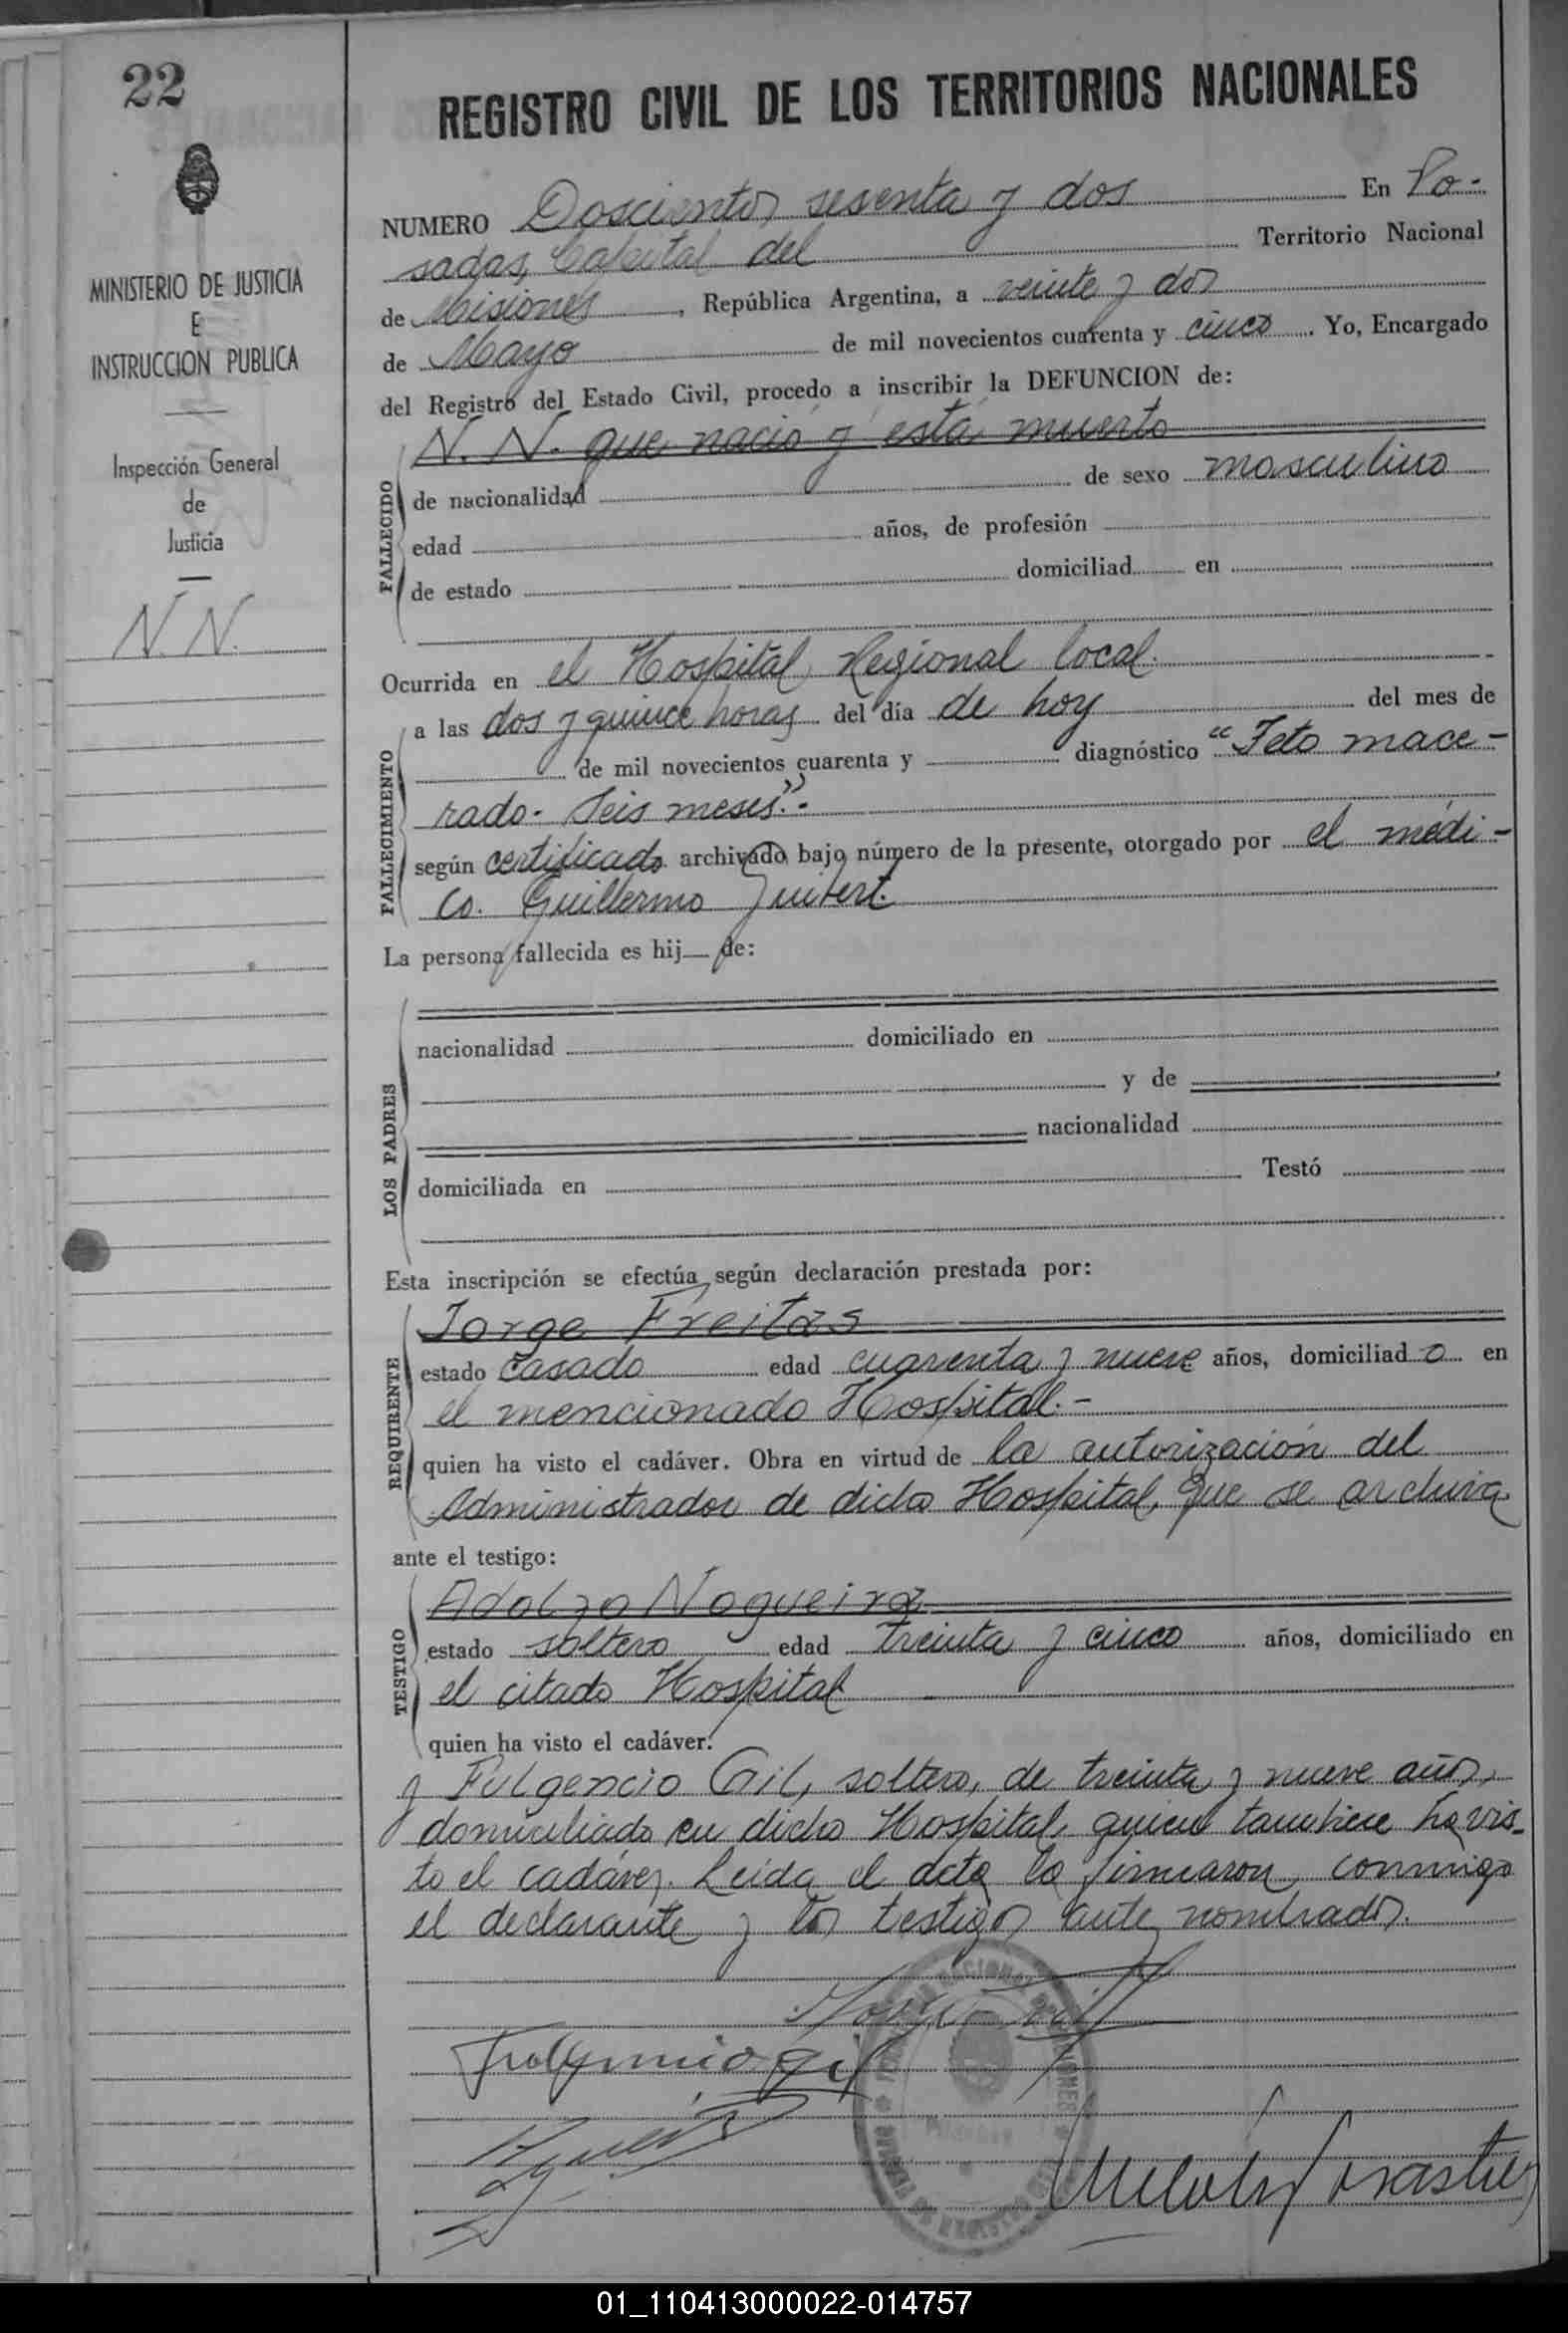 22
MINISTERIO DE JUSTICIA
E
INSTRUCCION PUBLICA
Inspección General
de
Justicia
N. N.
REGISTRO CIVIL DE LOS TERRITORIOS NACIONALES
NUMERO Doscientos sesenta y dos En Po-
sadas, Capital del Territorio Nacional
de Misiones, República Argentina, a veinte y dos
de Mayo de mil novecientos cuarenta y cinco. Yo, Encargado
del Registro del Estado Civil, procedo a inscribir la DEFUNCION de:
N. N. que nació y está muerto
FALLECIDO
de nacionalidad de sexo masculino
edad años, de profesión
de estado domiciliad en
Ocurrida en el Hospital Regional local.
FALLECIMIENTO
a las dos y quince horas del día de hoy del mes de
de mil novecientos cuarenta y diagnóstico "Feto mace-
rado. Seis meses".-
según certificado archivado bajo número de la presente, otorgado por el médi-
co. Guillermo
La persona fallecida es hij de:
LOS PADRES
nacionalidad domiciliado en
y de
nacionalidad
domiciliada en Testó
Esta inscripción se efectúa según declaración prestada por:
REQUIRENTE
Jorge Freitas
estado casado edad cuarenta y nueve años, domiciliad o en
el mencionado Hospital.-
quien ha visto el cadáver. Obra en virtud de la autorización del
Administrador de dicho Hospital, que se archiva
ante el testigo:
TESTIGO
Adolfo Nogueira
estado soltero edad treinta y cinco años, domiciliado en
el citado Hospital
quien ha visto el cadáver.
y Fulgencio Gil, soltero, de treinta y nueve años,
domiciliado en dicho Hospital, quien tambien ha vis-
to el cadáver. Leida el acta la firmaron conmigo
el declarante y los testigos ante nombrados.
Fulgencio Gil
01_110413000022-014757